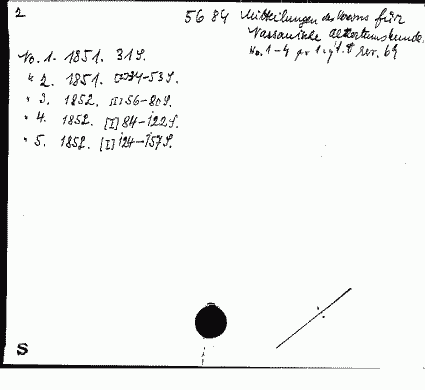 2
5684 Mitteilungen des Vereins für
Nassauische Altertumskunde.
No. 1-4
No. 1. 1851. 31 S.
" 2. 1851. [I] 34-53 S.
" 3. 1852. [I] 56-80 S.
" 4. 1852. [I] 84-122 S.
" 5. 1852. [I] 124-157 S.
S